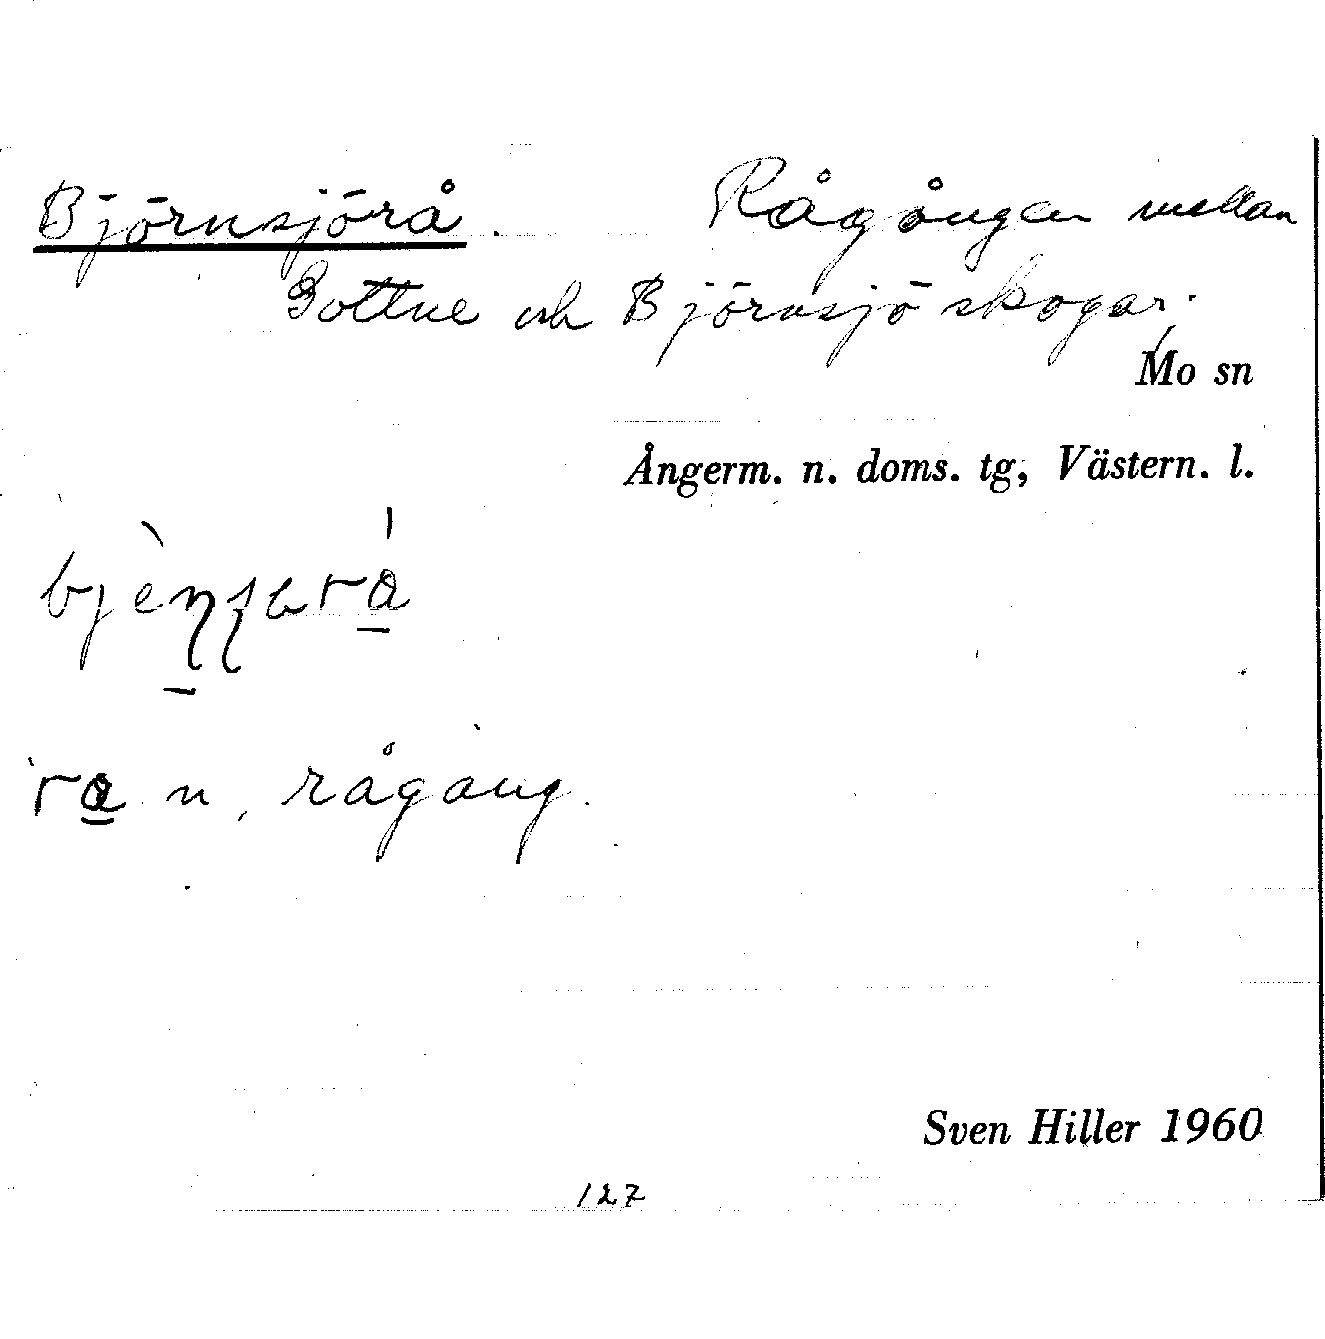 Björnsjörå. Rågången mellan
Gottne och Björnsjö skogar.
Mo sn
Ångerm. n. doms. tg, Västern. l.
n, rågång.
Sven Hiller 1960
127